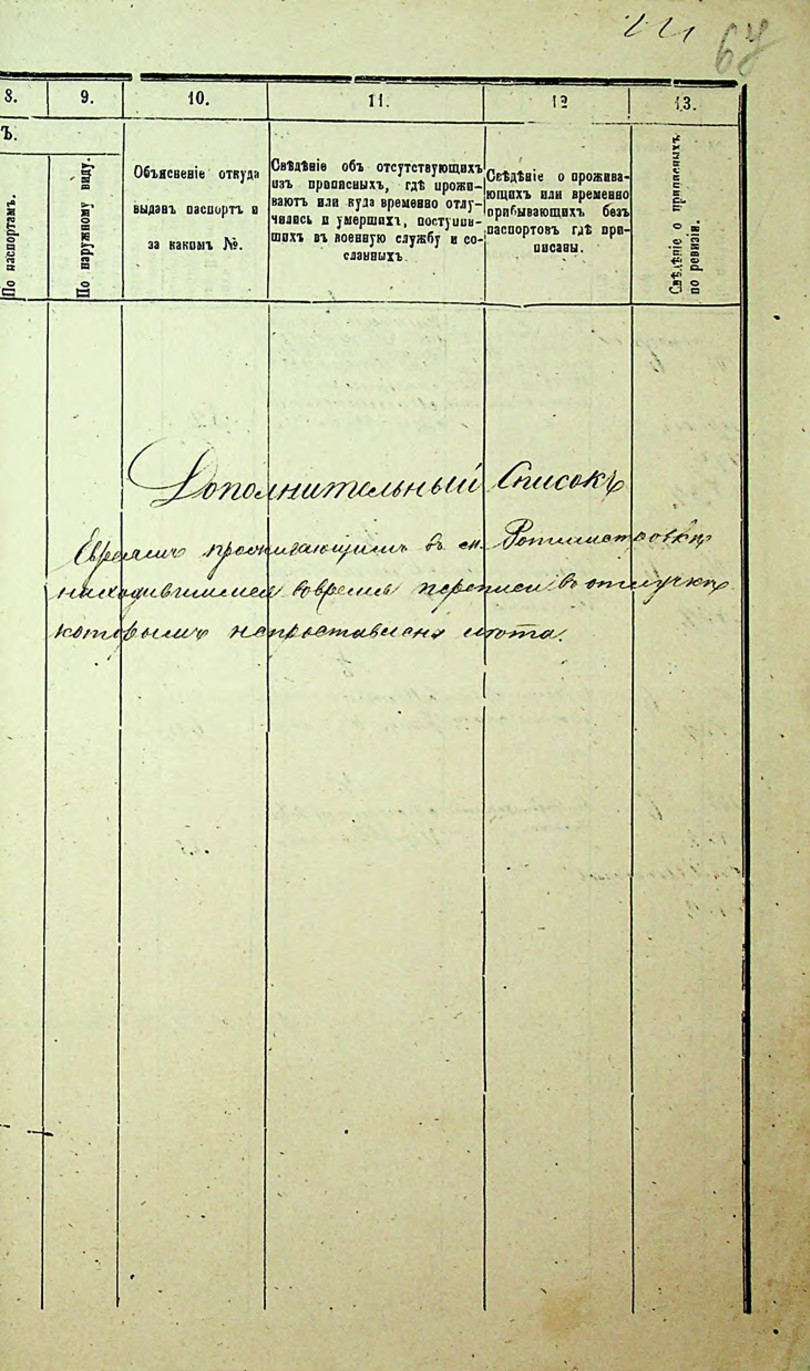 68
8.
9.
10.
11.
12
13.
Ъ.
По паспортамъ.
По наружному виду.
Объясненіе откуда
выданъ паспортъ и
за какимъ №.
Свѣдѣніе объ отсутствующихъ
изъ приписныхъ, гдѣ прожи-
ваютъ или куда временно отлу-
чились и умершихъ, поступив-
шихъ въ военную службу и со-
сланныхъ.
Свѣдѣніе о прожива-
ющихъ или временно
прибывающихъ безъ
паспортовъ гдѣ при-
писаны.
Свѣдѣніе о приписныхъ
по ревизіи.
Дополнительный Списокъ
Евреямъ проживающимъ въ м. Ротмистровкѣ
находившимися вовремя переписи въ отлучкѣ
которымъ непроставлены лѣта.